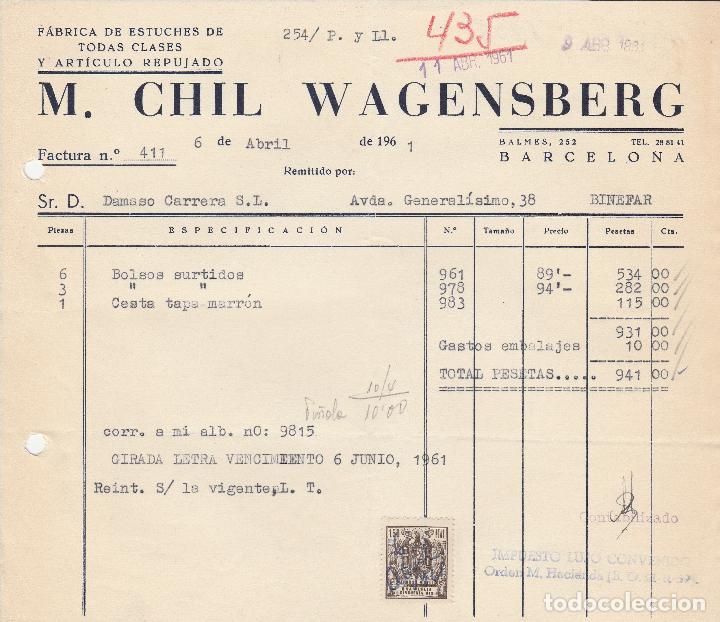 FÁBRICA DE ESTUCHES DE
TODAS CLASES
Y ARTÍCULO REPUJADO
254/ P. y Ll.
435
11 ABR. 1961
9 ABR 1961
M. CHIL WAGENSBERG
Factura n.º 411 6 de Abril de 1961
BALMES, 252 TEL. 28 81 41
BARCELONA
Remitido por:
Sr. D. Damaso Carrera S.L. Avda. Generalísimo, 38 BINEFAR
Piezas ESPECIFICACIÓN N.º Tamaño Precio Pesetas Cts.
6 Bolsos surtidos 961 89'- 534 00
3 " " 978 94'- 282 00
1 Cesta tapa marrón 983 115 00
931 00
Gastos embalajes 10 00
TOTAL PESETAS..... 941 00
10/4
Piñola 10'00
corr. a mi alb. nO: 9815
GIRADA LETRA VENCIMIENTO 6 JUNIO, 1961
Reint. S/ la vigente, L. T.
Contabilizado
IMPUESTO LUJO CONVENIDO
Orden M. Hacienda
todocoleccion.net